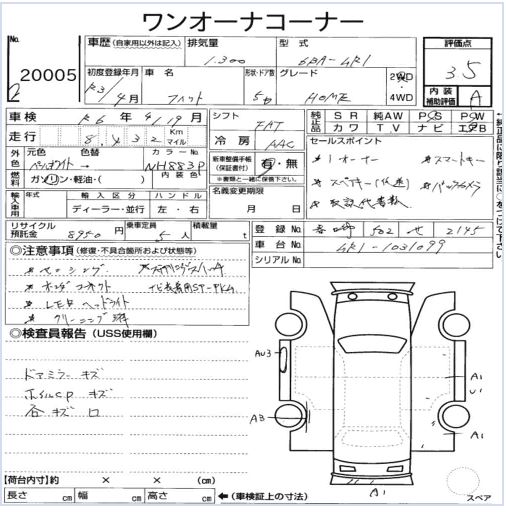 ワンオーナコーナー
No. 20005
車歴 (自家用以外は記入)
排気量 1.300
型式 6BA-GR1
評価点 3.5
初度登録年月 R3/4月
車名 フィット
形状・ドア数 5
グレード HOME
2WD
4WD
内装補助評価 A
車検 R6年4月19日
シフト FAT
純正品 SR 純AW PS PW
カワ TV ナビ エアB
走行 8,432 Km マイル
冷房 AAC
セールスポイント
外色 元色 色替 カラーNo. NH883P
燃料 ガソリン・軽油・( ) 内装色
新車整備手帳 (保証書付) 有・無
※書類と一緒に保管下さい。
*1オーナー *スマートキー
*スペアキー *バックカメラ
*取説
輸入車用 年式 輸入区分 ハンドル
ディーラー・並行 左・右
名義変更期限
月 日
リサイクル預託金 8950円
乗車定員 5人
積載量 t
登録No. 502 せ 2145
車台No. GR1-1031099
シリアルNo.
◎注意事項 (修復・不具合箇所および状態等)
*ホンダコネクト
*LEDヘッドライト
*クリーニング済
◎検査員報告 (USS使用欄)
ドアミラーキズ
ホイルCPキズ
各キズ
AU3
A3
A1
U1
A1
A1
【荷台内寸】約 × × (cm)
長さ cm 幅 cm 高さ cm ←(車検証上の寸法)
スペア